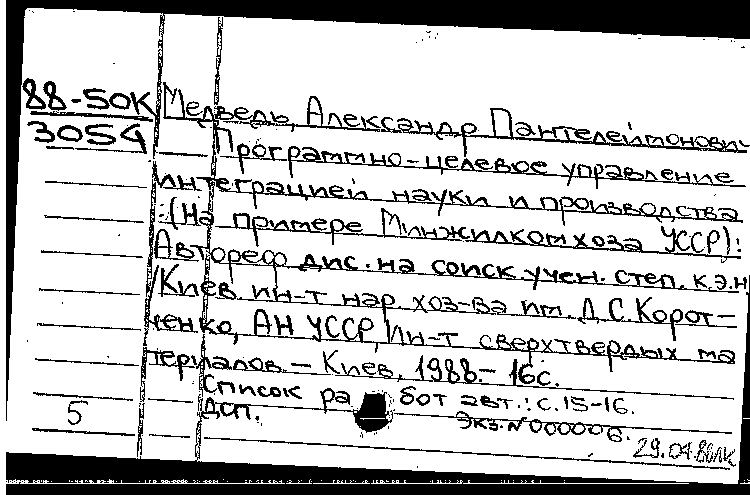 88-50К
3054
Медведь, Александр Пантелеймонович
Программно-целевое управление
интеграцией науки и производства
:(На примере Минжилкомхоза УССР):
Автореф дис. на соиск. учен. степ. к.э.н
/Киев. ин-т нар. хоз-ва им. Д.С.Корот-
ченко, АН УССР, Ин-т сверхтвердых ма
териалов. – Киев, 1988.– 16с.
Список ра бот авт.: с.15-16.
ДСП.
Экз. N 000006.
5
29.04.88